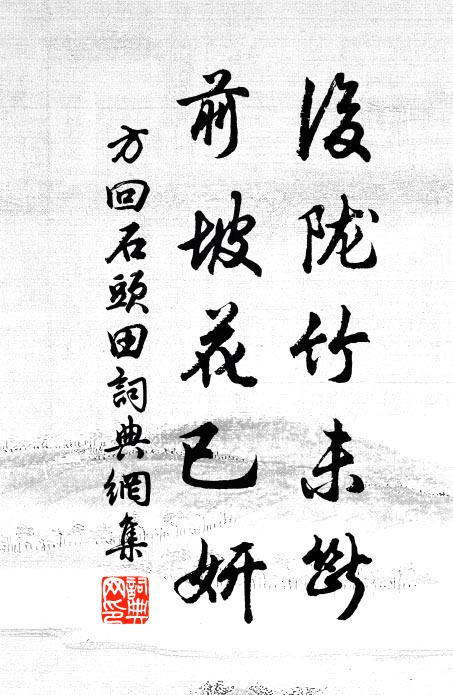 後陇竹未斷
前坡花已妍
方回石頭田詞典網集
詞典网印